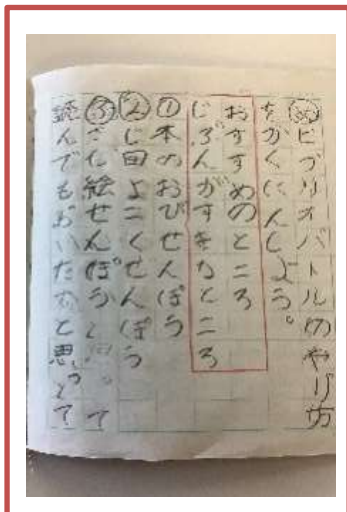 め ビブリオバトルのやり方
をかくにんしよう。
おすすめのところ
じぶんがすきなところ
①本のおびせんぽう
②じ回よこくせんぽう
③さし絵せんぽう
読んでもおいたなと思って